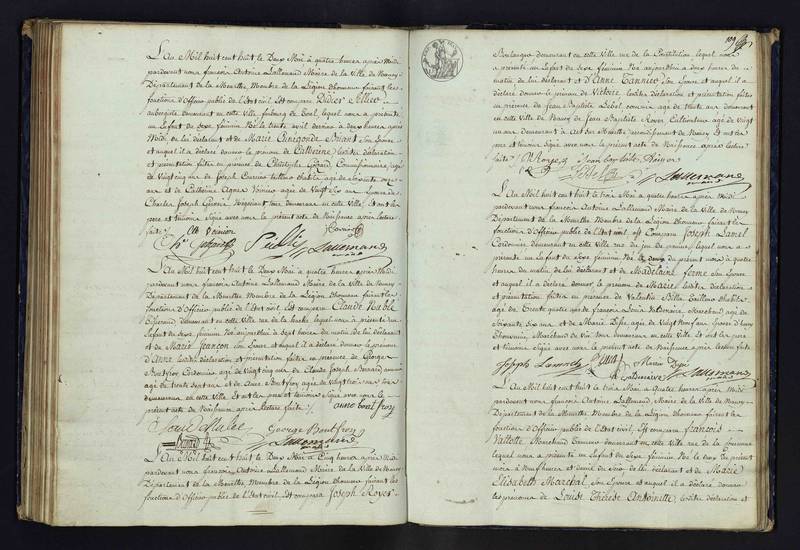 L'An Mil huit cent huit le Deux Mai à quatre heures après Midi
pardevant nous françois Antoine Lallemand Maire de la Ville de Nancy
Département de la Meurthe, Membre de la Légion d'honneur faisant les
fonctions d'Officier public de l'Etat civil est comparu Didier
aubergiste demeurant en cette Ville faubourg de Toul, lequel nous a présenté
un Enfant de sexe féminin Né le trente avril dernier à deux heures après
Midi de lui déclarant et de Marie Cunégonde Briant Son Epouse
et auquel il a déclaré donner le prénom de Catherine lesdites déclaration
et présentation faites en présence de Christophe Gérard Commissionnaire, agé
de Vingt cinq ans de Joseph
ans et de Catherine agée de Vingt Six ans Epouse de
Charles Joseph demeurant en cette Ville Et ont les
père et témoins Signé avec nous le présent acte de Naissance après lecture
faite
Lallemand
L'An Mil huit cent huit le Deux Mai à quatre heures après Midi
pardevant nous françois Antoine Lallemand Maire de la Ville de Nancy
Département de la Meurthe Membre de la Légion d'honneur faisant les
fonctions d'Officier public de l'Etat civil Est comparu Claude Nablé
demeurant en cette Ville rue de la hache lequel nous a présenté un
Enfant de sexe féminin Né aujourd'hui à Sept heures du matin de lui déclarant
et de Marie françon Son Epouse et auquel il a déclaré donner le prénom
d'Anne lesdites déclaration et présentation faites en présence de George
Bontfroy Cordonnier agé de Vingt cinq ans de Claude Joseph Bernard
agé de trente Sept ans et de Anne Bontfroy agée de Vingt trois ans tous
demeurans en cette Ville Et ont les père et témoins Signé avec nous le
présent acte de Naissance après lecture faite anne bontfroy
George Bontfroy
Lallemand
L'An Mil huit cent huit le Deux Mai à Cinq heures après Midi
pardevant nous françois Antoine Lallemand Maire de la Ville de Nancy
Département de la Meurthe, Membre de la Légion d'honneur faisant les
fonctions d'Officier public de l'Etat civil Est comparu Joseph Royer
109
Boulanger demeurant en cette Ville rue de la Constitution lequel nous
a présenté un Enfant de Sexe féminin Né aujourd'hui à deux heures du
matin de lui déclarant et d'Anne Tannier Son Epouse et auquel il a
déclaré donner le prénom de Victoire lesdites déclaration et présentation faites
en présence de Jean Baptiste Lebel agé de trente ans demeurant
en cette Ville de Nancy de Jean Baptiste Royer Cultivateur agé de Vingt
un ans demeurant à arrondissement de Nancy Et ont les
père et témoins Signé avec nous le présent acte de Naissance après lecture
faite J Royer Jean Baptiste Roiyer
Lebel Lallemand
L'An Mil huit cent huit le trois Mai à quatre heures après Midi
pardevant nous françois Antoine Lallemand Maire de la Ville de Nancy
Département de la Meurthe Membre de la Légion d'honneur faisant les
fonctions d'Officier public de l'Etat civil est Comparu Joseph Lanel
Cordonnier demeurant en cette Ville rue du jeu de paume, lequel nous a
présenté un Enfant de sexe féminin Né le deux du présent mois à quatre
heures du matin, de lui déclarant et de Madelaine ferme Son Epouse
et auquel il a déclaré donner le prénom de Marie, lesdites déclaration
et présentation faites en présence de Valentin Billa Tailleur d'habits
agé de Trente quatre ans de françois Louis Valdenaire, Marchand, agé de
Soixante Six ans et de Marie Dése agée de Vingt Neuf ans Epouse d'henry
Marchand de Vin tous demeurans en cette Ville Et ont les père
et témoins Signé avec nous le présent acte de Naissance après lecture faite
Joseph Billa Marie
valdenaire Lallemand
L'An Mil huit cent huit le trois Mai à Quatre heures après Midi
pardevant nous françois Antoine Lallemand, Maire de la Ville de Nancy
Département de la Meurthe Membre de la Légion d'honneur faisant les
fonctions d'Officier public de l'Etat civil, Est comparu françois
Vallotte Marchand demeurant en cette Ville rue de la
lequel nous a présenté un Enfant de Sexe féminin Né le deux du présent
mois à Neuf heures et demie du Soir de lui déclarant et de Marie
Elisabeth Marechal Son Epouse et auquel il a déclaré donner
les prénoms de Louise Thérèse Antoinette, lesdites déclaration et